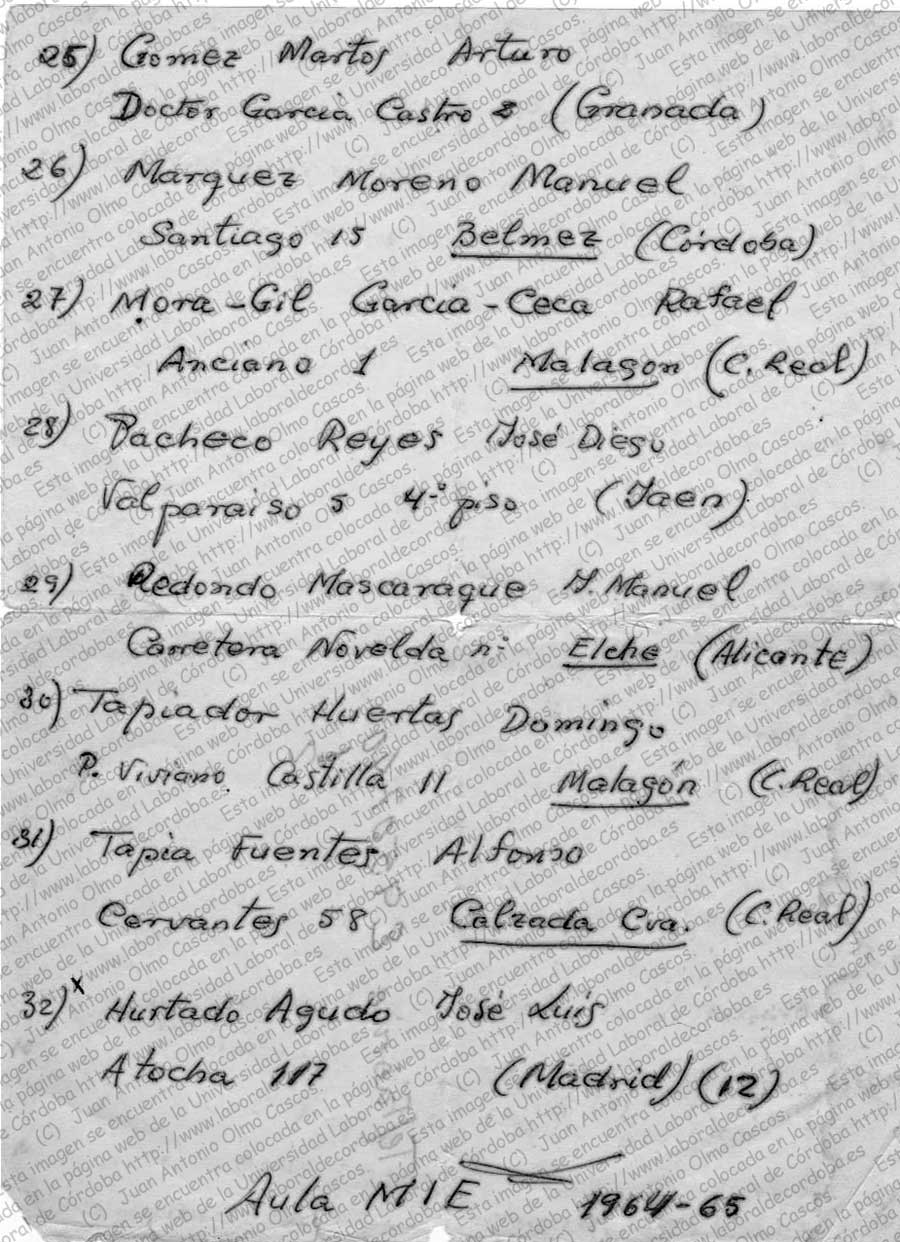 25) Gomez Martos Arturo
Doctor Garcia Castro 8 (Granada)
26) Marquez Moreno Manuel
Santiago 15 Belmez (Córdoba)
27) Mora-Gil Garcia-Ceca Rafael
Anciano 1 Malagon (C. Real)
28) Pacheco Reyes José Diego
Valparaiso 5 4.º piso (Jaen)
29) Redondo Mascaraque J. Manuel
Carretera Novelda n: Elche (Alicante)
30) Tapiador Huertas Domingo
P. Viviano Castilla 11 Malagón (C. Real)
31) Tapia Fuentes Alfonso
Cervantes 58 Calzada Cva. (C. Real)
32) x Hurtado Agudo José Luis
Atocha 117 (Madrid) (12)
Aula MIE 1964-65
(C) Juan Antonio Olmo Cascos.
Esta imagen se encuentra colocada en la página web de la Universidad Laboral de Córdoba http://www.laboraldecordoba.es